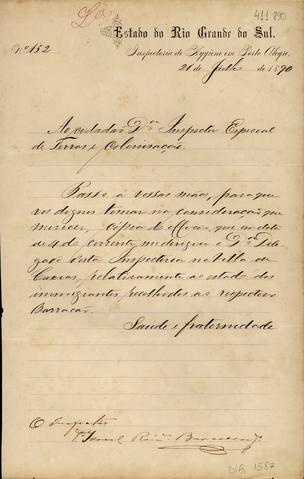 411 890
Estado do Rio Grande do Sul.
Nº 152
Inspectoria de Hygiene em Porto Alegre,
21 de Julho de 1890
Ao cidadão Dr. Inspector Especial
de Terras e Colonisação.
Passo á vossas mãos, para que
vos digneis tomar na consideração que
merecer, cópia do officio, que em data
de 4 do corrente, me dirigiu o Dr. Dele-
gado desta Inspectoria na Villa de
Caxias, relativamente ao estado dos
immigrantes recolhidos ao respectivo
Barracão.
Saude e fraternidade
O Inspector
Dr. Israel
DIR 1587